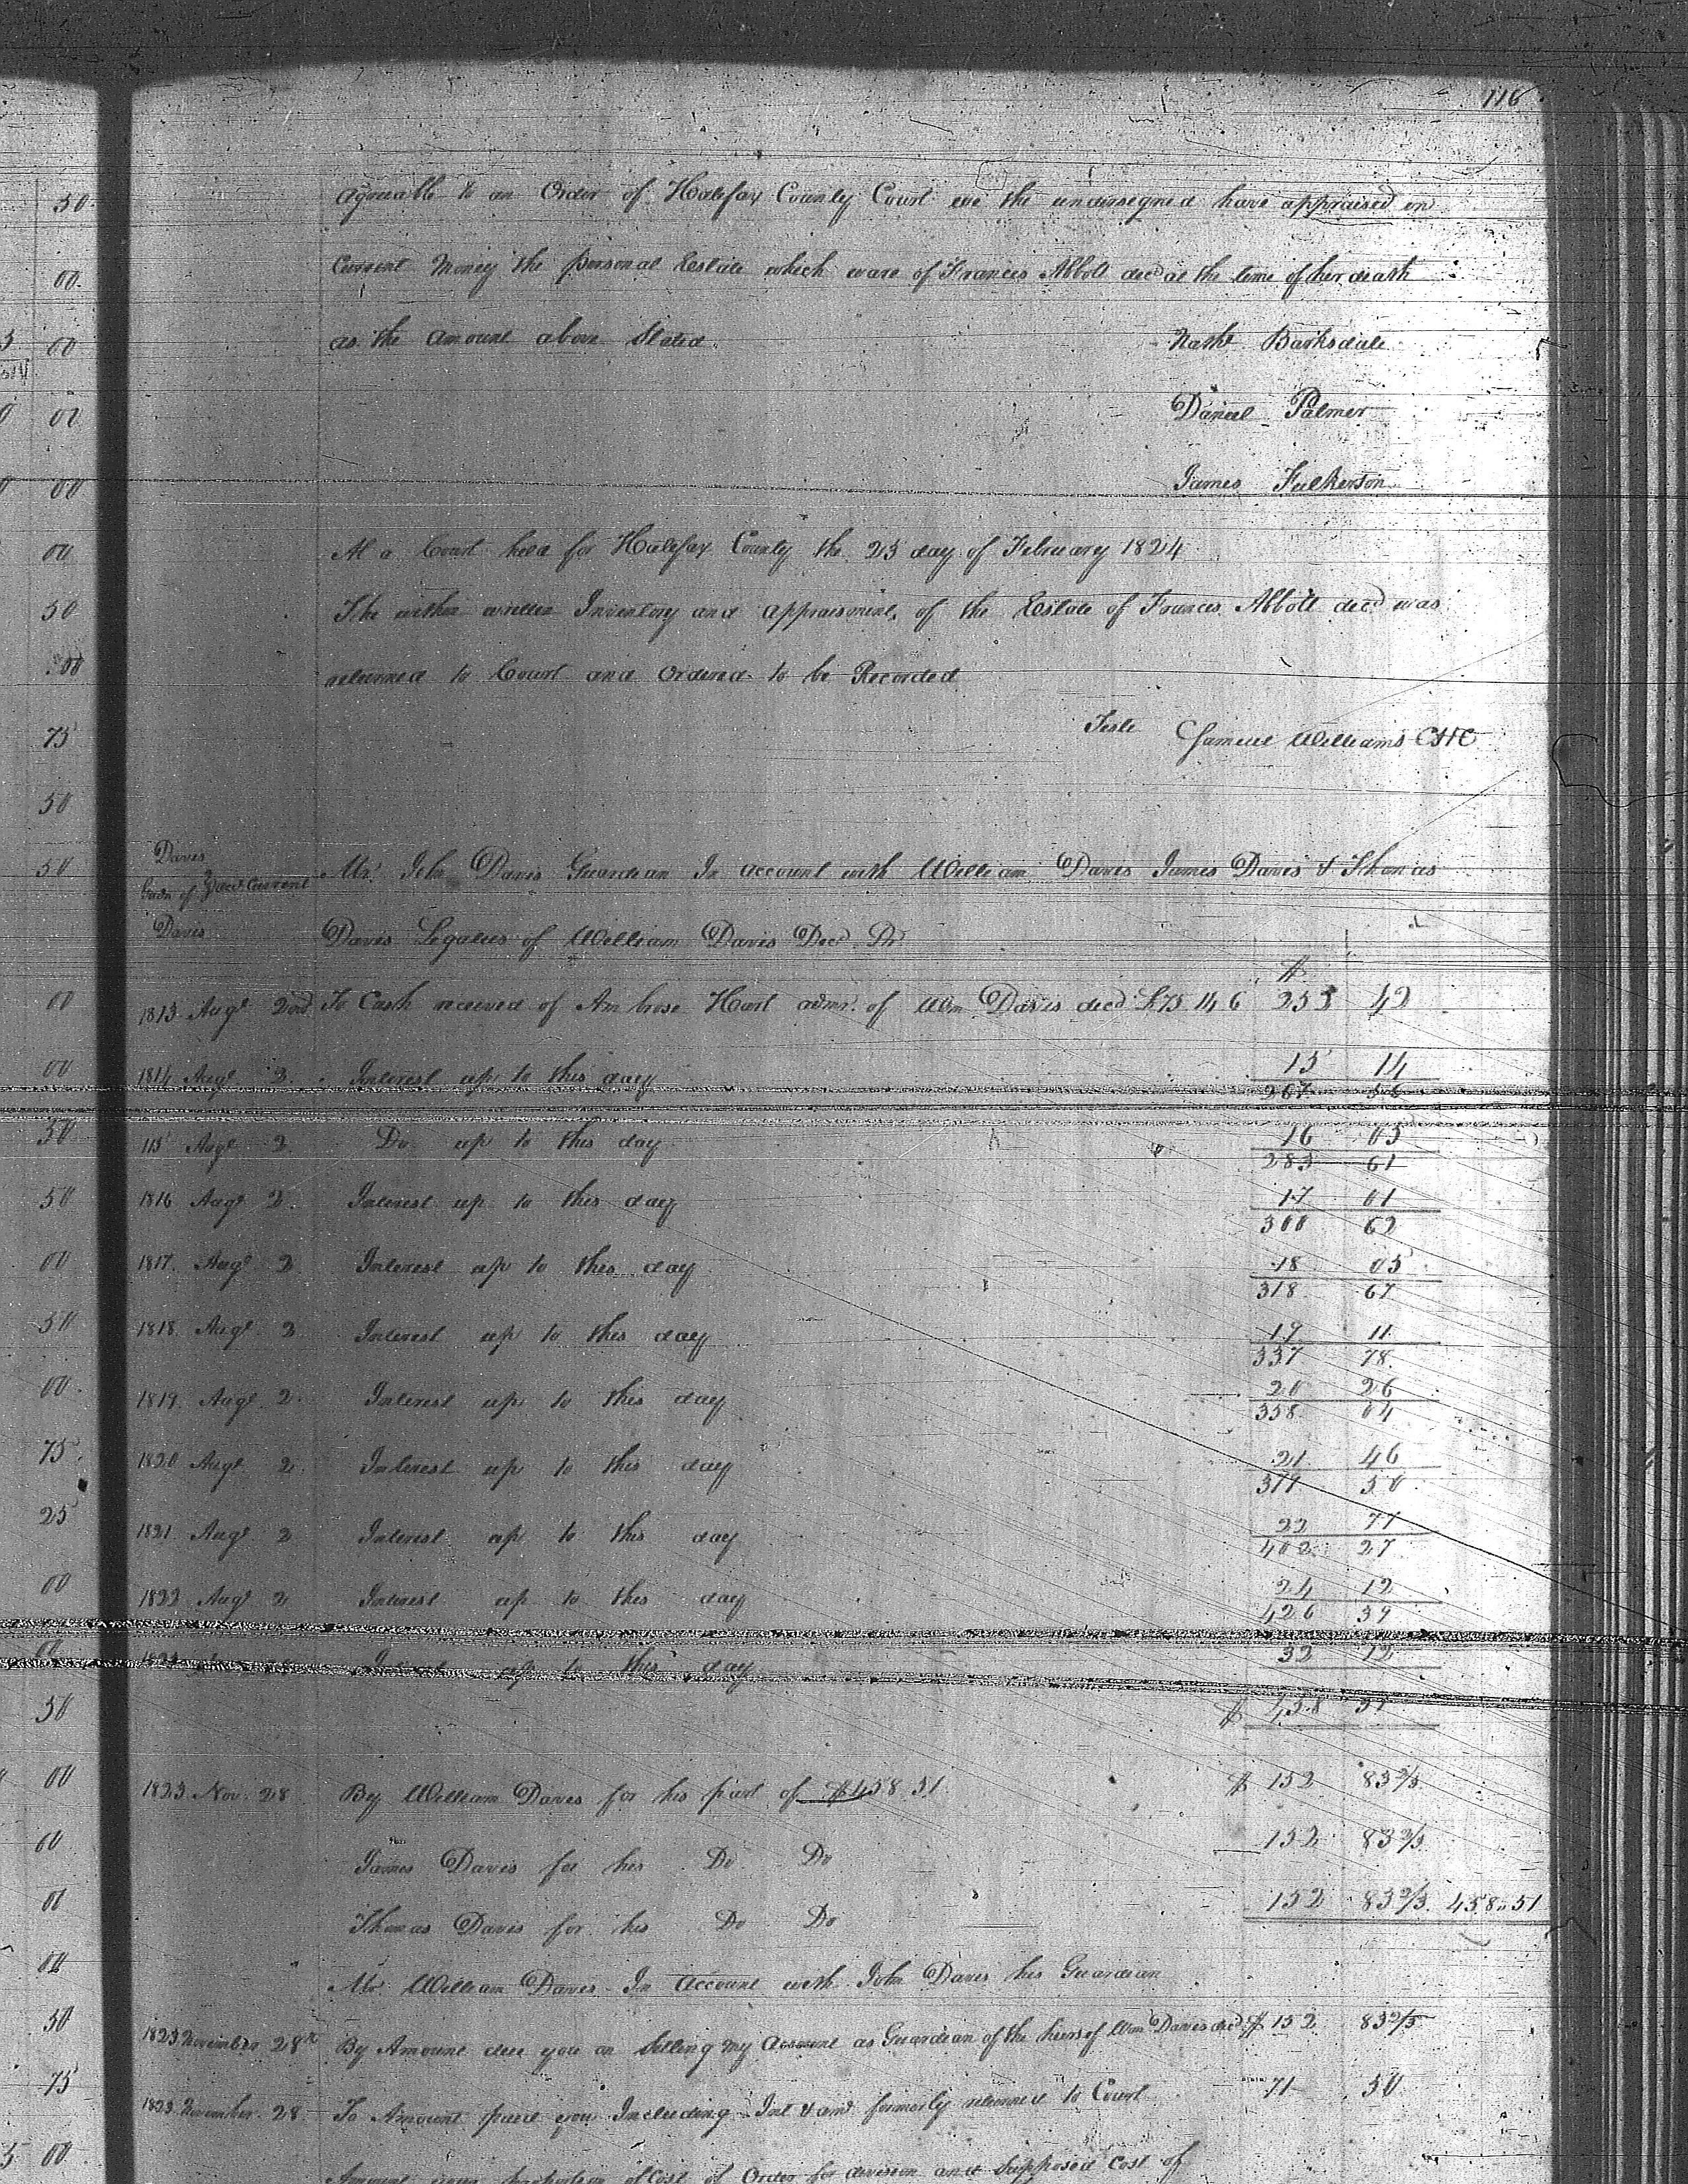 116
Agreeable to an Order of Halifax County Court we the undersigned have appraised in
Current Money the personal Estate which ware of Frances Abbott decd at the time of her death
as the amount above Stated.
Nathl Barksdale
Daniel Palmer
James Fulkerson
At a Court held for Halifax County the 23 day of February 1824
The within written Inventory and appraisment, of the Estate of Frances Abbott decd was
returned to Court and Ordered to be Recorded
Teste Samuel Williams CHC
Davis
Guardn of Acct Current
Davis
Mr. John Davis Guardian In account with William Davis James Davis & Thomas
Davis Legatees of William Davis Decd Dr
$
1813 Augt 2nd To Cash received of Ambrose Hart admr. of Wm Davis decd £75 14 6 252 42
1814 Augt 2. Interest up to this day 15 14
267 56
115 Augt 2 Do up to this day 16 05
283 61
1816 Augt 2. Interest up to this day 17 01
300 62
1817. Augt 2 Interest up to this day 18 05
318 67
1818 Augt 2 Interest up to this day 19 11
337 78
1819 Augt 2. Interest up to this day 20 26
358 04
1820 Augt 2. Interest up to this day 21 46
379 50
1821. Augt 2 Interest up to this day 22 77
402 27
1822 Augt 2 Interest up to this day 24 12
426 39
1823 Interest up to this day 32 12
$ 458 51
1823 Nov. 28 By William Davis for his part of $458 51 $ 152 83 2/3
James Davis for his Do Do 152 83 2/3
Thomas Davis for his Do Do 152 83 2/3 458..51
Mr. William Davis In Account with John Davis his Guardian
1823 November 28th By Amount due you on Settling my Account as Guardian of the heirs of Wm Davis decd $ 152 83 2/3
1823 November 28 To Amount paid you Including Int & formerly returned to Court 71 50
Amount your proportion of Cost of Order for division and Supposed Cost of